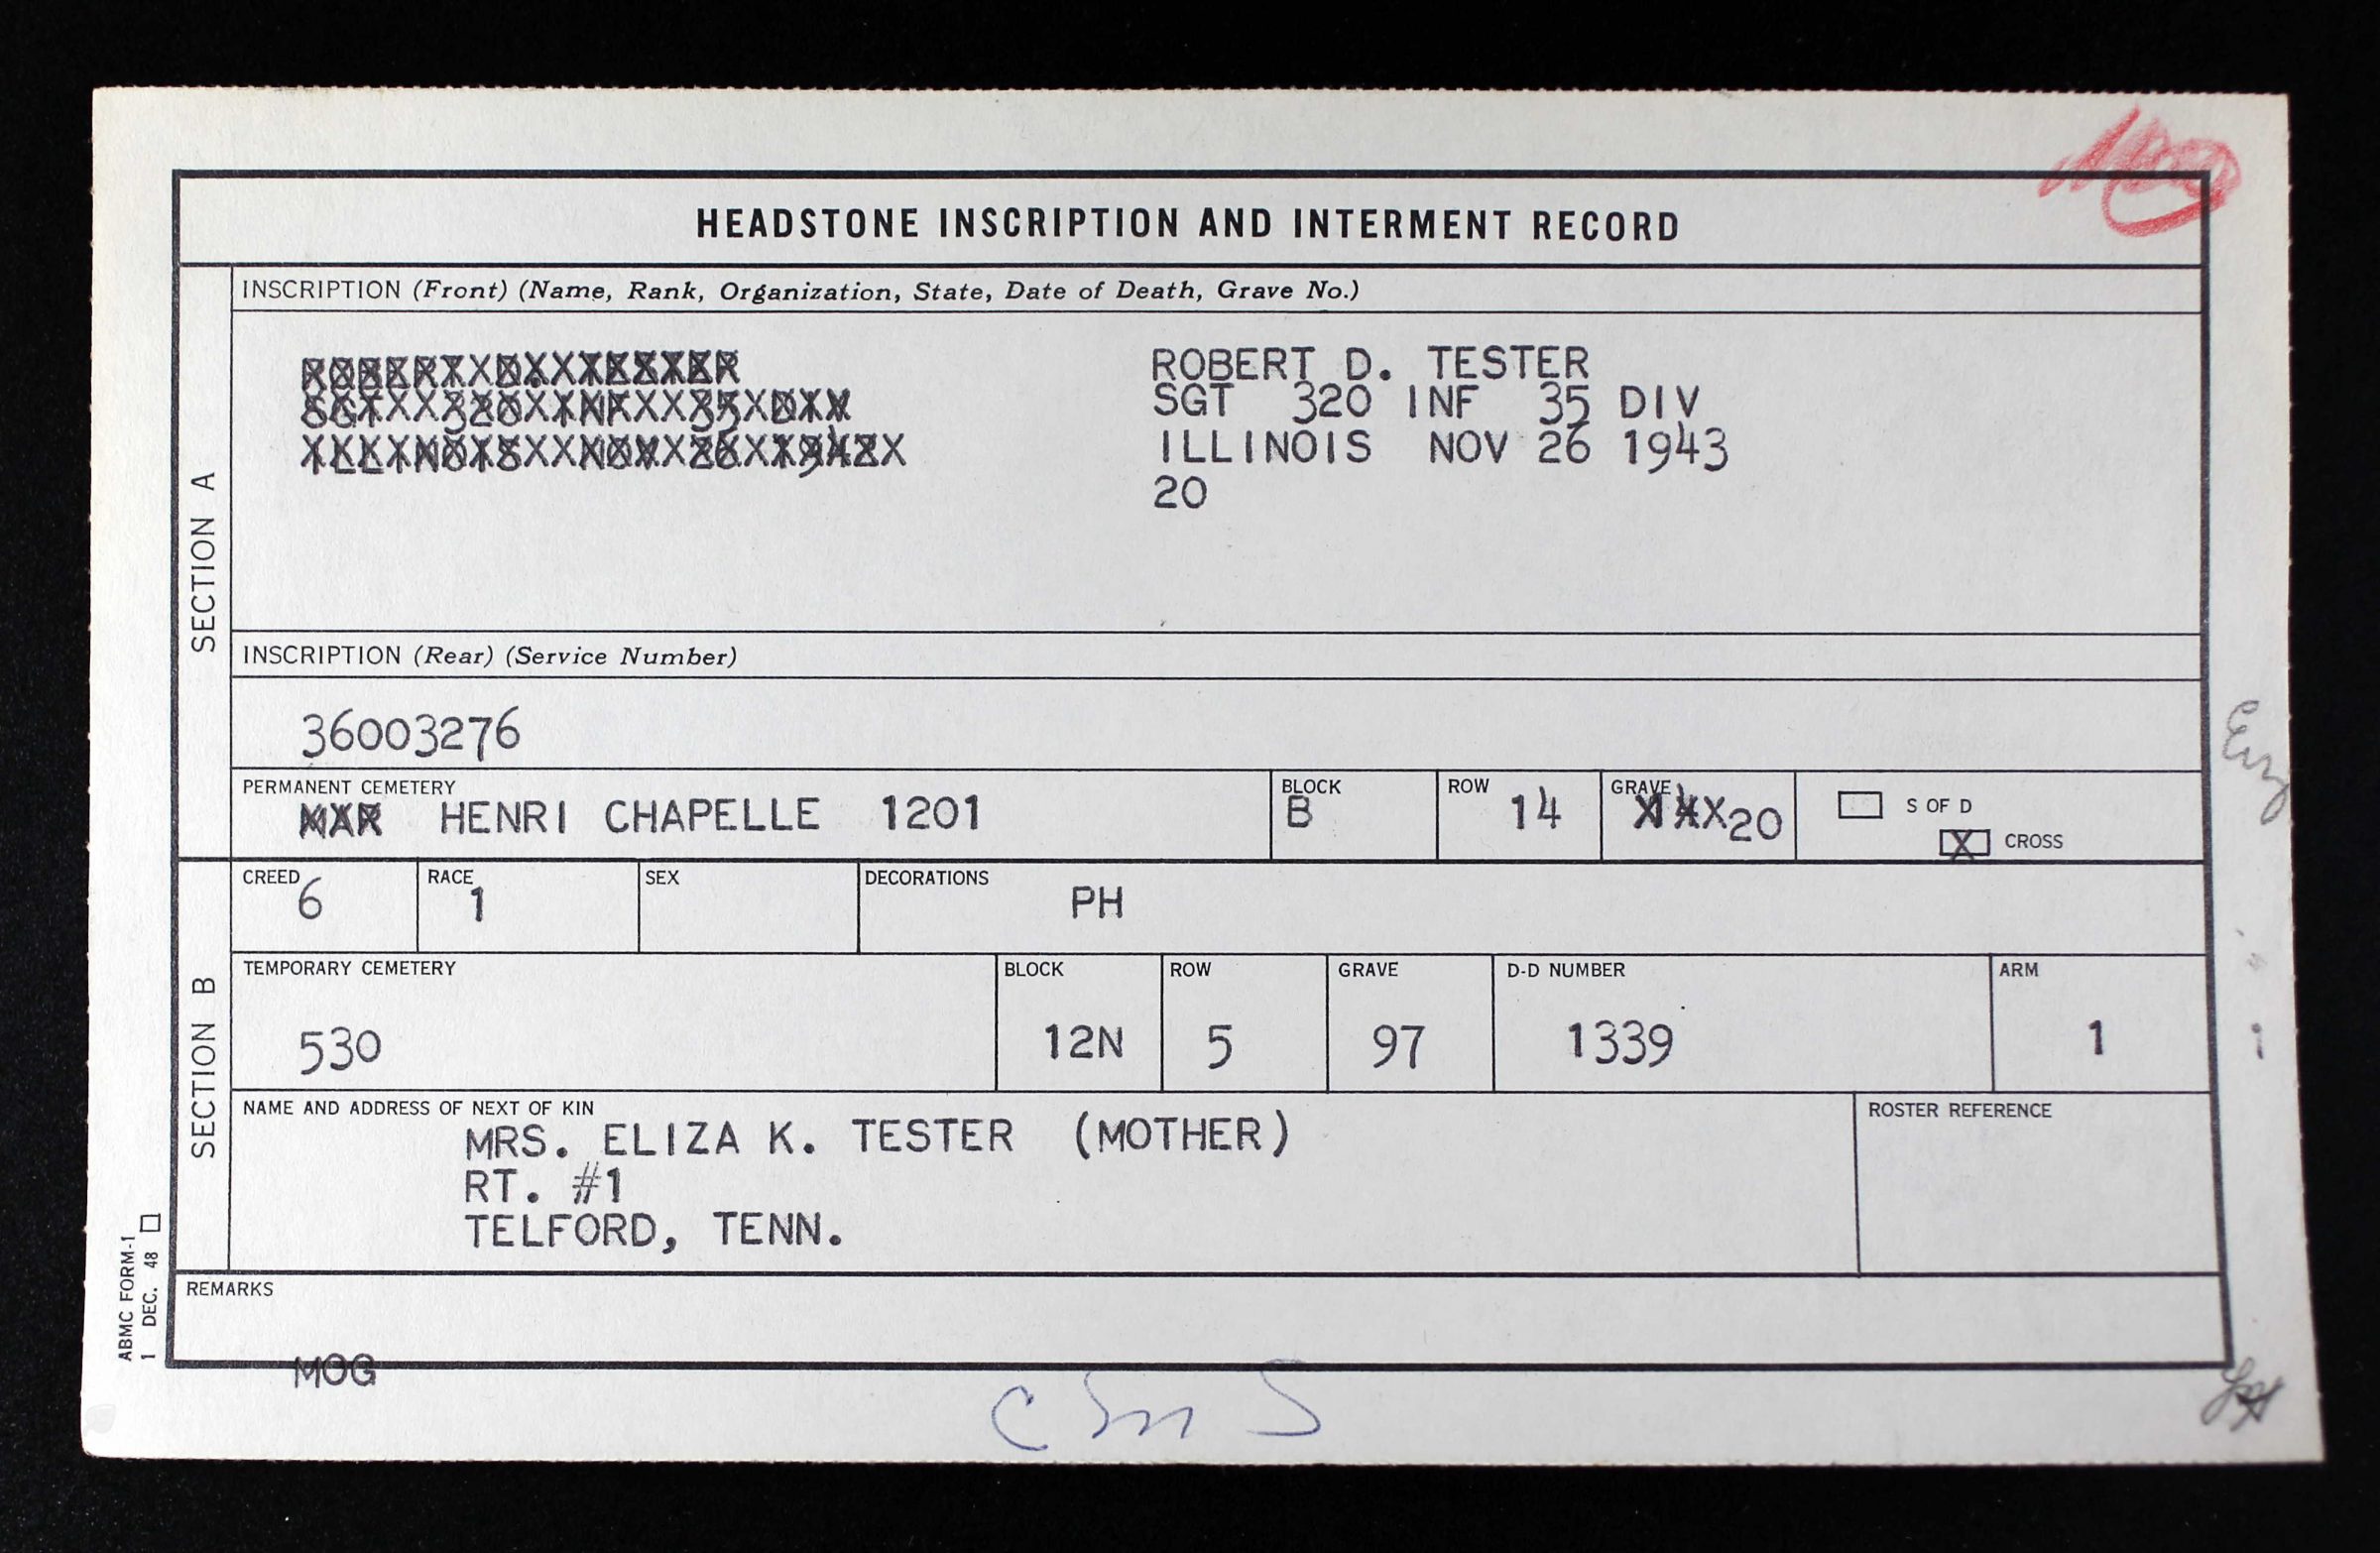 HEADSTONE INSCRIPTION AND INTERMENT RECORD
SECTION A
INSCRIPTION (Front) (Name, Rank, Organization, State, Date of Death, Grave No.)
ROBERT D. TESTER
SGT 320 INF 35 DIV
ILLINOIS NOV 26 1943
20
INSCRIPTION (Rear) (Service Number)
36003276
PERMANENT CEMETERY
HENRI CHAPELLE 1201
BLOCK
B
ROW
14
GRAVE
20
S OF D
X CROSS
SECTION B
CREED
6
RACE
1
SEX
DECORATIONS
PH
TEMPORARY CEMETERY
530
BLOCK
12N
ROW
5
GRAVE
97
D-D NUMBER
1339
ARM
1
NAME AND ADDRESS OF NEXT OF KIN
MRS. ELIZA K. TESTER (MOTHER)
RT. #1
TELFORD, TENN.
ROSTER REFERENCE
REMARKS
MOG
ABMC FORM-1
1 DEC. 48